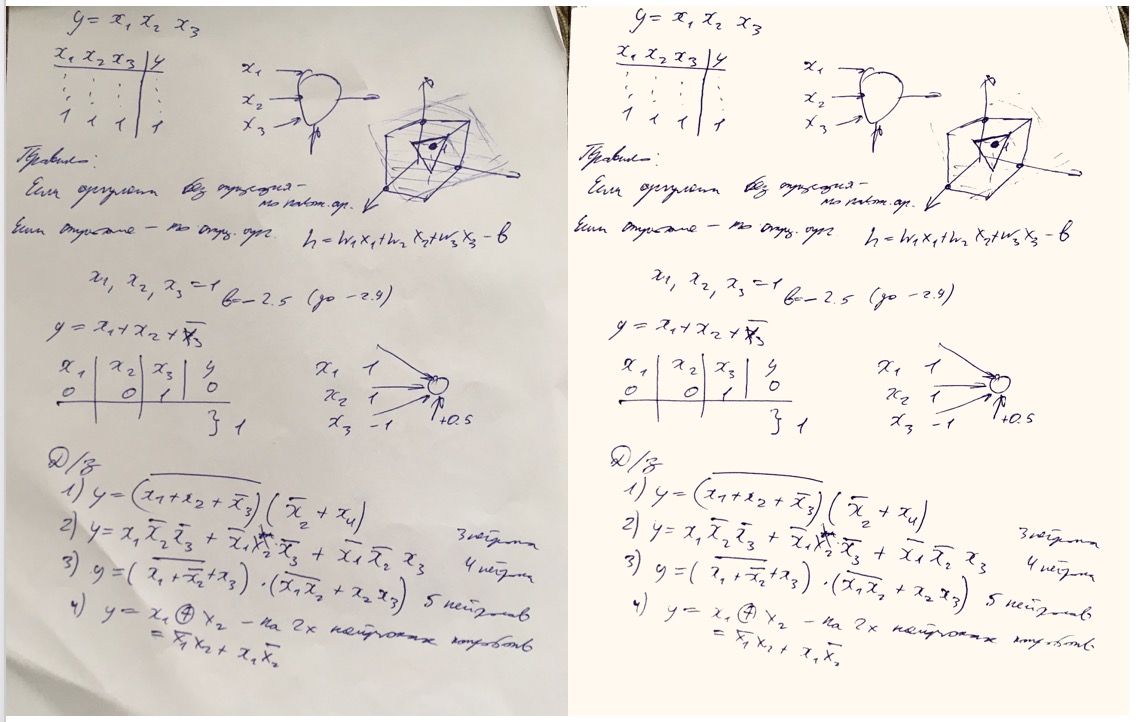 y = x₁ x₂ x₃
x₁ x₂ x₃ | y
1 1 1 | 1
x₁
x₂
x₃
Правило:
Если аргумент без отрицания –
Если отрицание – то отриц. арг.
h = w₁x₁+w₂x₂+w₃x₃ – b
x₁, x₂, x₃ = 1
b = – 2.5 (до –2.9)
y = x₁ + x₂ + x̅₃
x₁ | x₂ | x₃ | y
0 | 0 | 1 | 0
} 1
x₁ 1
x₂ 1
x₃ -1
+0.5
Д/з
1) y = (x₁ + x₂ + x̅₃)‾ (x̅₂ + x₄)
3 нейрона
2) y = x₁ x̅₂ x̅₃ + x̅₁ x₂ x̅₃ + x̅₁ x̅₂ x₃
4 нейрона
3) y = (‾x₁ + x̅₂‾ + x₃) · (‾x₁x₂‾ + x₂x₃)
5 нейронов
4) y = x₁ ⊕ x₂ – на 2х нейронах
= x̅₁x₂ + x₁x̅₂
y = x₁ x₂ x₃
x₁ x₂ x₃ | y
1 1 1 | 1
x₁
x₂
x₃
Правило:
Если аргумент без отрицания –
Если отрицание – то отриц. арг
h = w₁x₁+w₂x₂+w₃x₃ – b
x₁, x₂, x₃ = 1
b = – 2.5 (до –2.9)
y = x₁ + x₂ + x̅₃
x₁ | x₂ | x₃ | y
0 | 0 | 1 | 0
} 1
x₁ 1
x₂ 1
x₃ -1
+0.5
Д/з
1) y = (x₁ + x₂ + x̅₃)‾ (x̅₂ + x₄)
3 нейрона
2) y = x₁ x̅₂ x̅₃ + x̅₁ x₂ x̅₃ + x̅₁ x̅₂ x₃
4 нейрона
3) y = (‾x₁ + x̅₂‾ + x₃) · (‾x₁x₂‾ + x₂x₃)
5 нейронов
4) y = x₁ ⊕ x₂ – на 2х нейронах
= x̅₁x₂ + x₁x̅₂